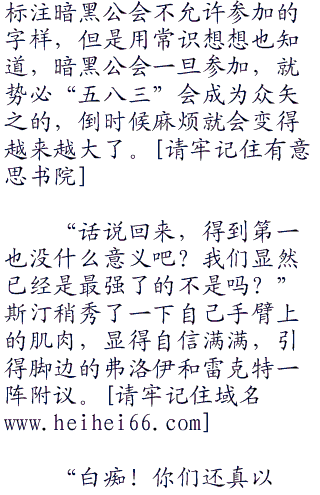 标注暗黑公会不允许参加的
字样，但是用常识想想也知
道，暗黑公会一旦参加，就
势必“五八三”会成为众矢
之的，倒时候麻烦就会变得
越来越大了。[请牢记住有意
思书院]
“话说回来，得到第一
也没什么意义吧？我们显然
已经是最强了的不是吗？”
斯汀稍秀了一下自己手臂上
的肌肉，显得自信满满，引
得脚边的弗洛伊和雷克特一
阵附议。[请牢记住域名
www.heihei66.com]
“白痴！你们还真以